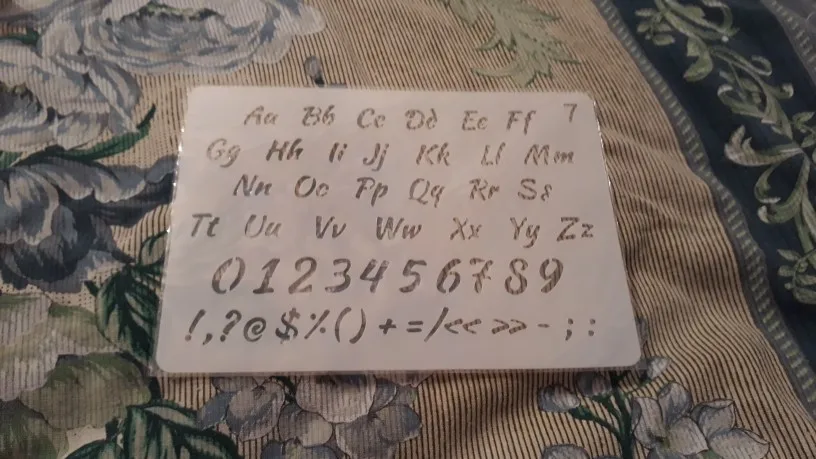 Aa Bb Cc Dd Ee Ff 7
Gg Hh Ii Jj Kk Ll Mm
Nn Oo Pp Qq Rr Ss
Tt Uu Vv Ww Xx Yy Zz
0123456789
!,?@$%()+=/<<>>-;: